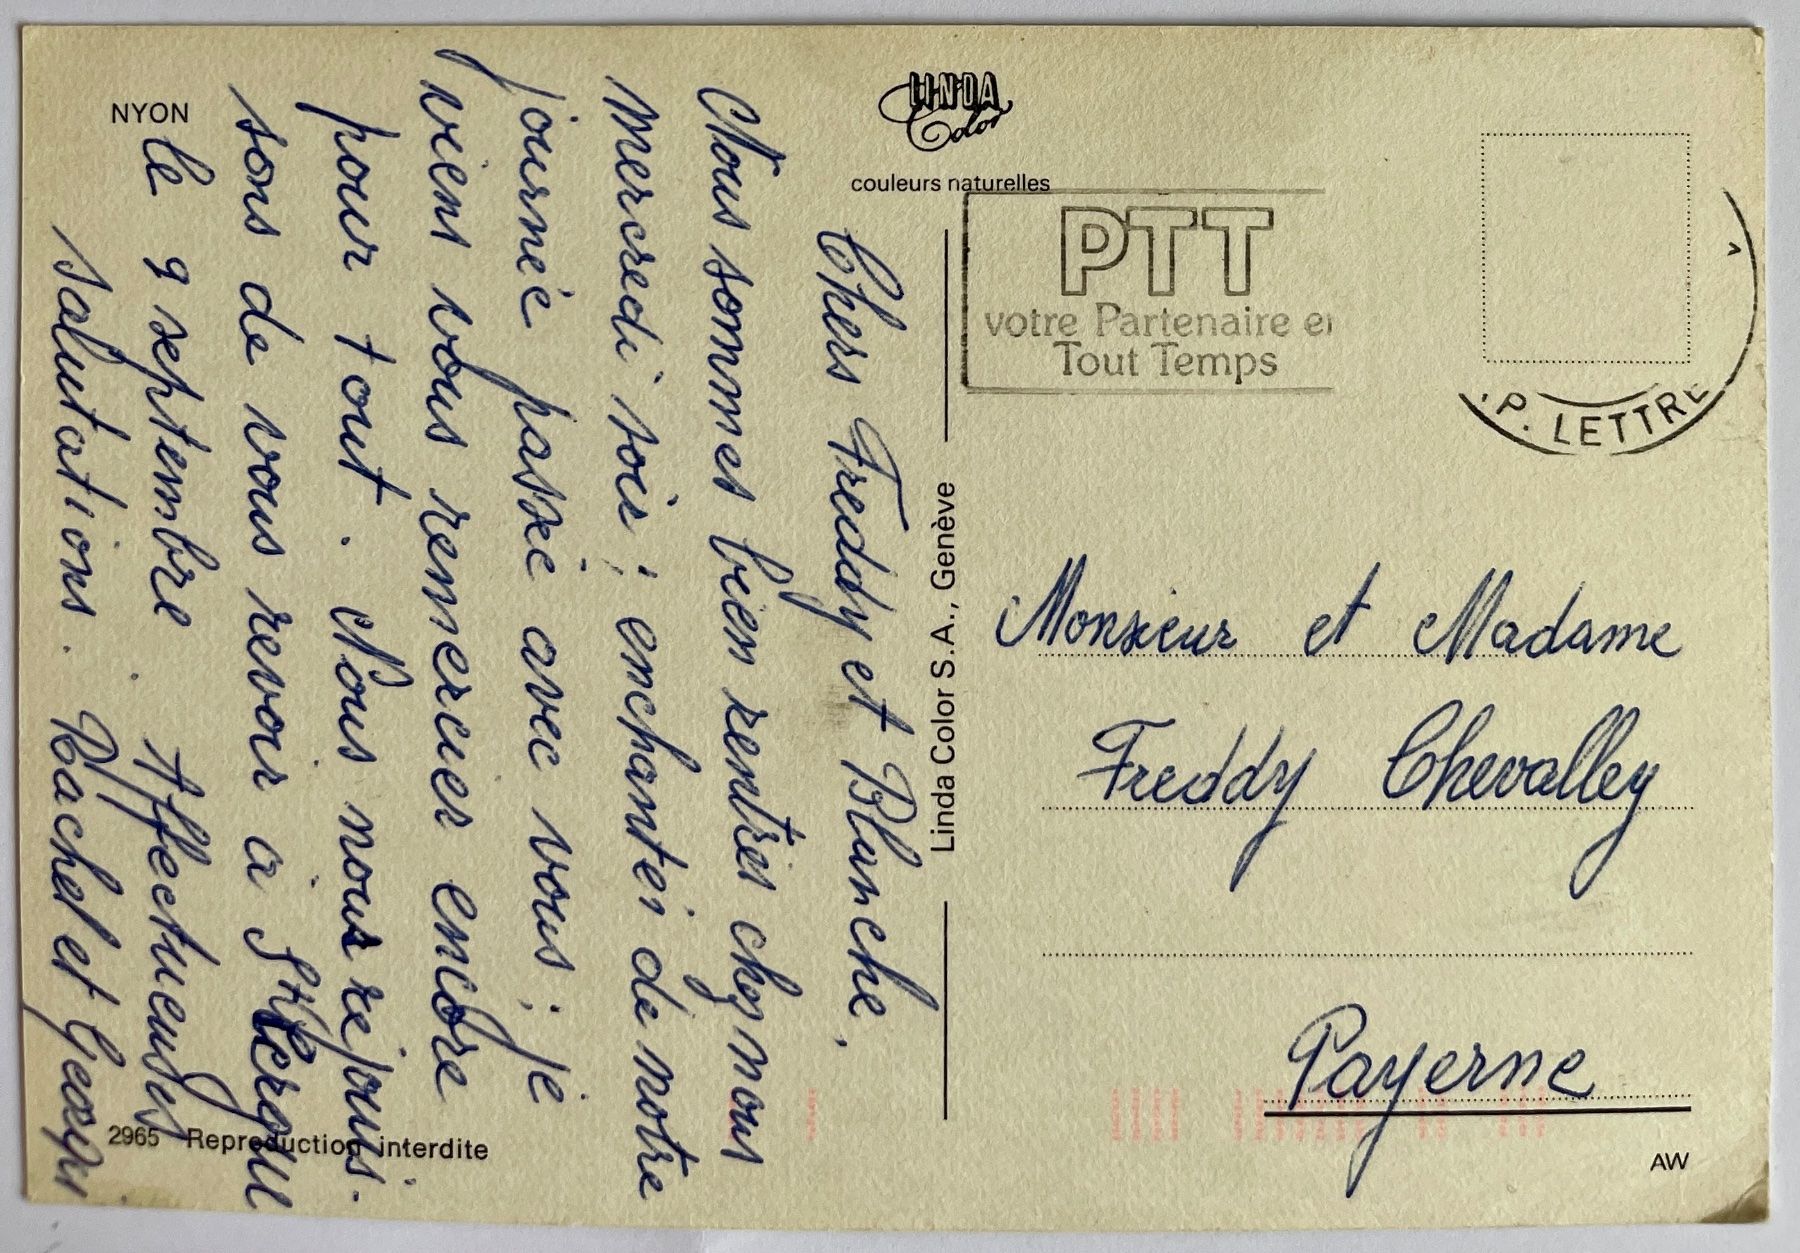 NYON
LINDA
Color
couleurs naturelles
PTT
votre Partenaire e
Tout Temps
.P. LETTRE
Chers Freddy et Blanche,
Nous sommes bien rentrés chez nous
mercredi soir ; enchantés de notre
journée passée avec vous ; je
viens vous remercier encore
pour tout. Nous nous réjouis-
sons de vous revoir à St Cergue
le 9 septembre. Affectueuses
salutations. Rachel et
Linda Color S.A., Genève
Monsieur et Madame
Freddy Chevalley
Payerne
2965 Reproduction interdite
AW